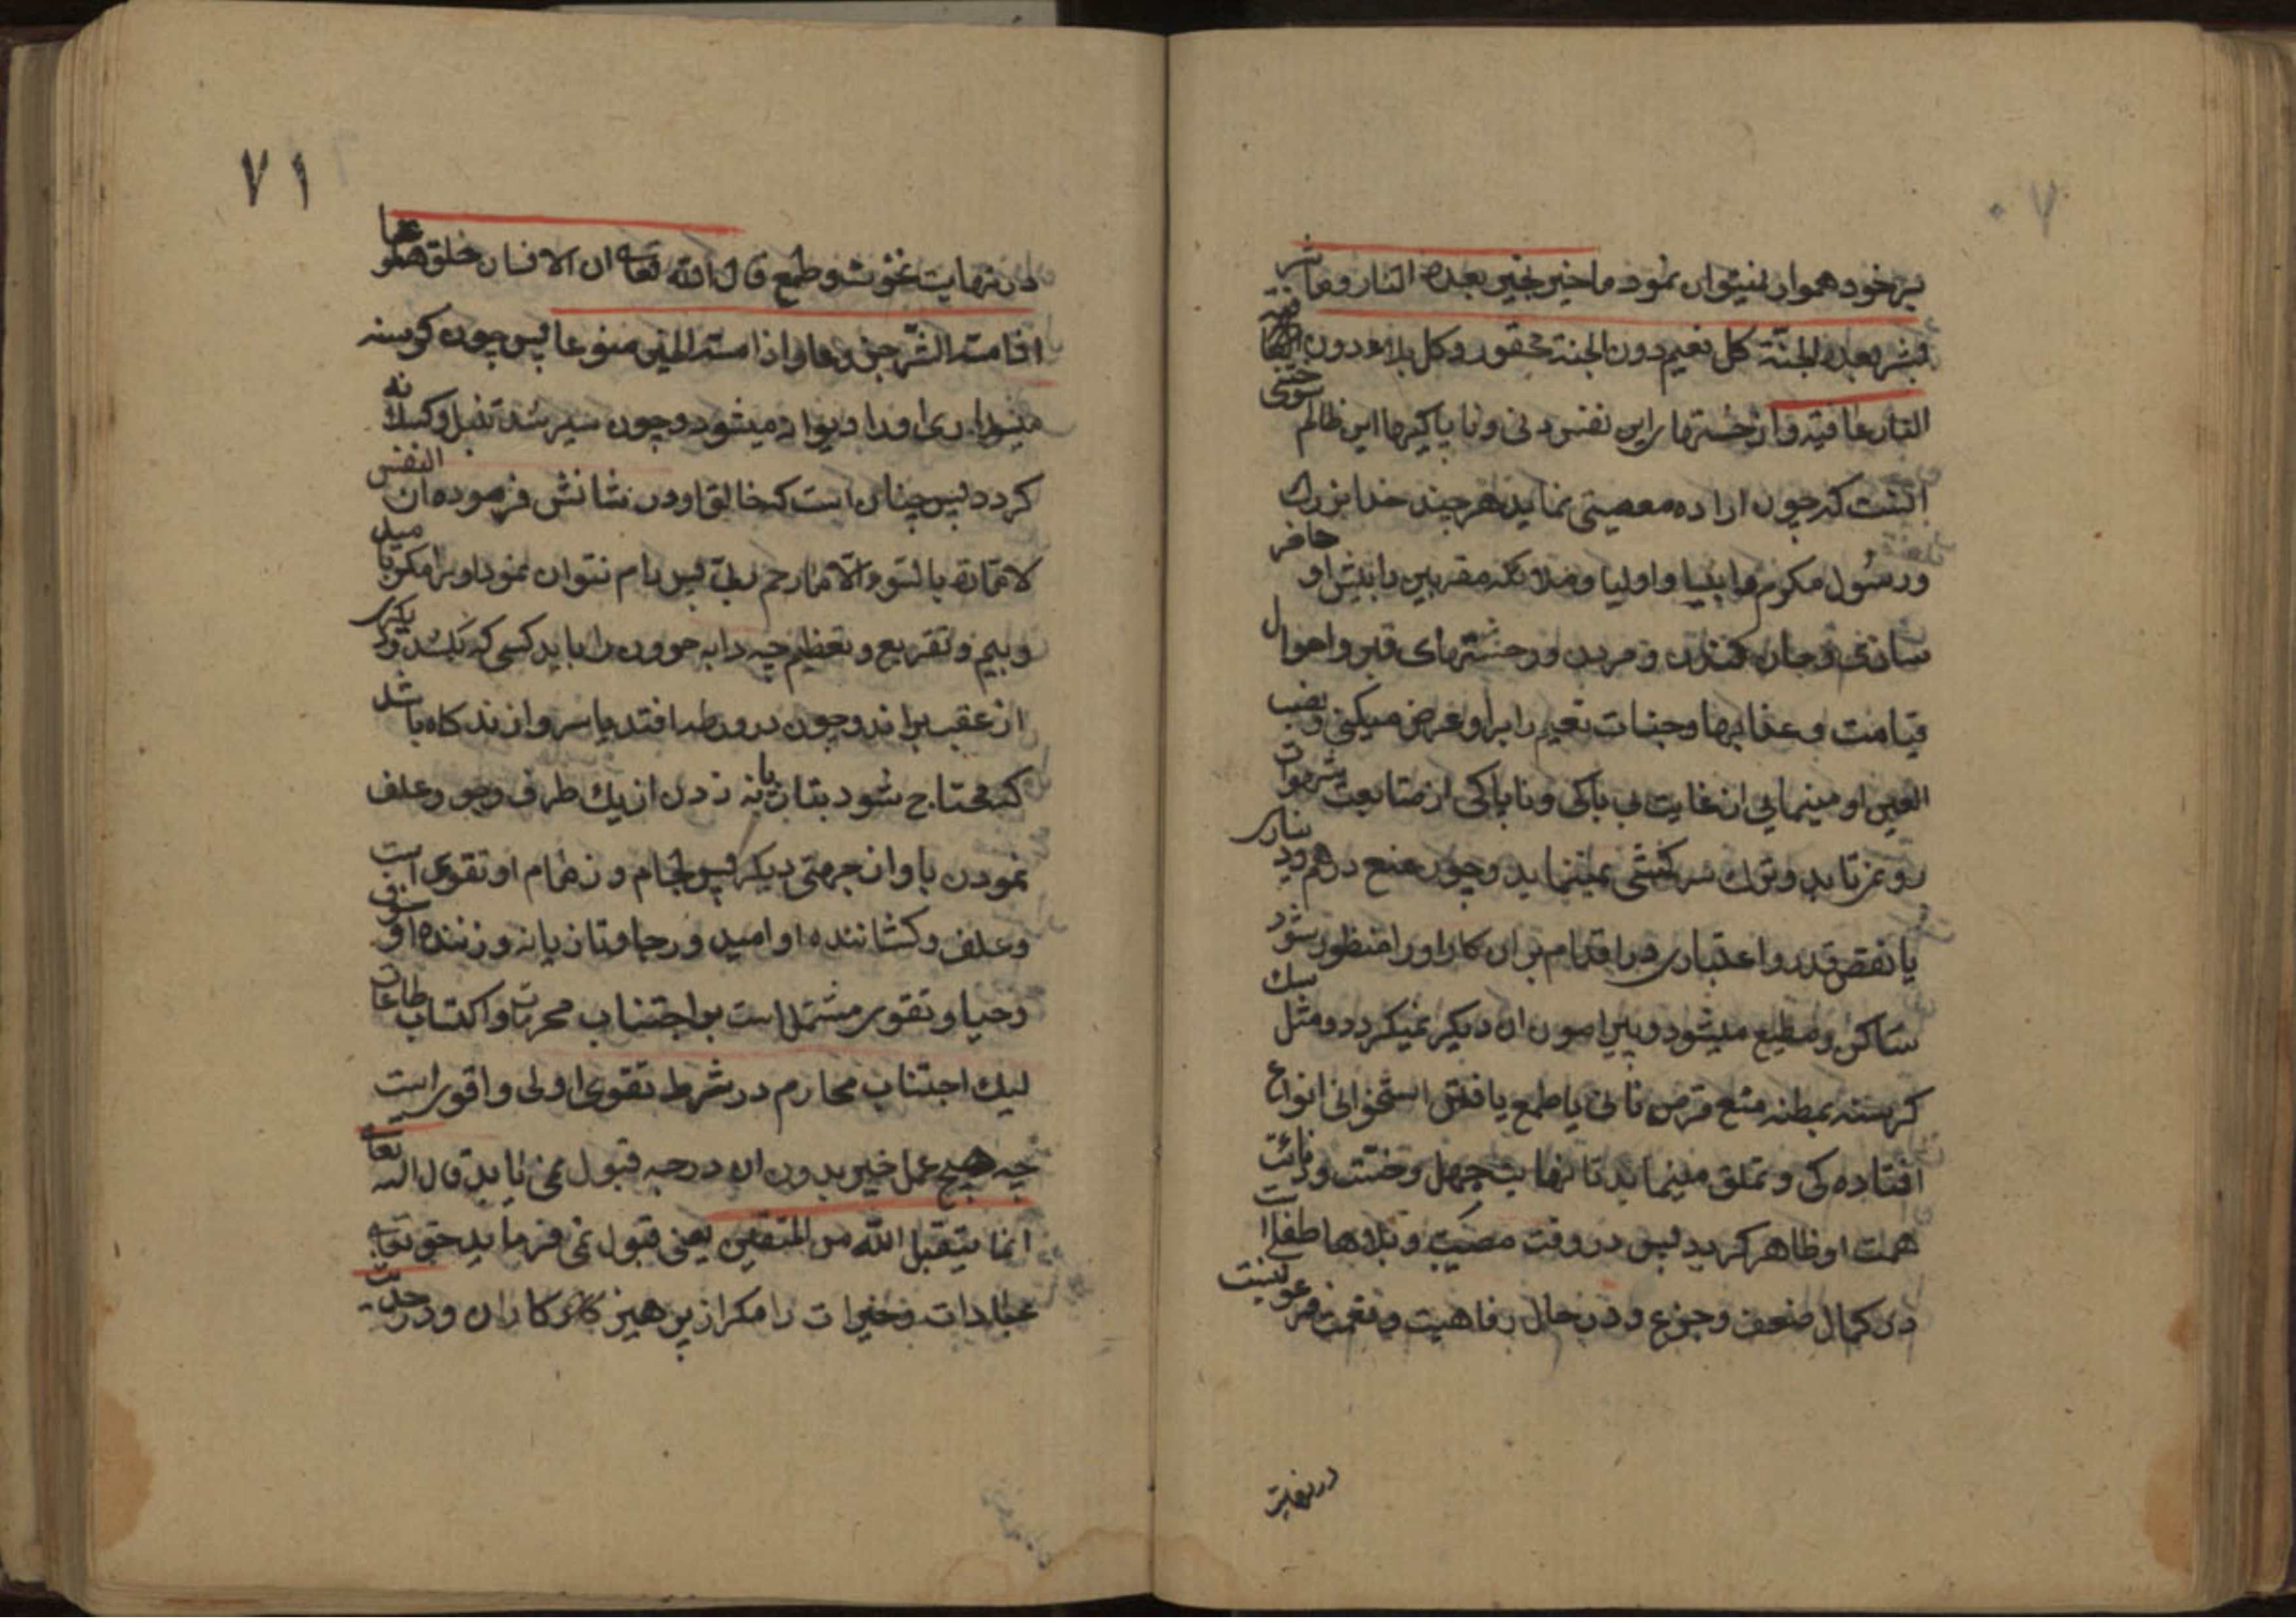 ۷۰
بر خود هموار نمیتوان نمود ما خیر بخیر بعده النار و ما شر
بشر بعده الجنة کل نعیم دون الجنة محقور وکل بلاء دون
النار عافیة و از خستهای این نفس دنی و ناپاکیها این ظالم
انست که چون اراده معصیتی نماید هر چند خدا بزرک
ورسول مکرم و انبیا و اولیا و ملائکه مقربین را پیش او حاضر
سازی و جان کندن و مردن و حشتهای قبر و احوال
قیامت و عذابها و جنات نعیم را براو عرض میکنی و نصب
العین او مینمایی از غایت بی باکی و ناپاکی از متابعت شهوات
رو نمیتابد و ترک سرکشی نمینماید و چون منع درهم و دیناری
یا نقص قدر و اعتباری در اقدام بران کار او را منظور شود
ساکن و مطیع میشود و پیرامون ان دیکر نمیکردد و مثل سک
کرسنه بمظنه منع قرص نانی یا طمع یافتن استخوانی انواع
افتاده کی و تملق مینماید تا نهایت جهل و خست و دنائت
همت او ظاهر کردد پس در وقت مصیبت و بلاها طفلی است
در کمال ضعف و جزع و در حال رفاهیت و نعمت فرعونیست
در نهایت
۷۱
در نهایت نخوت و طمع قال الله تعالی ان الانسان خلق هلوعا
اذا مسه الشر جزوعا و اذا مسه الخیر منوعا پس چون کرسنه
میداری او را دیوانه میشود و چون سیر شد تنبل و کسل
کردد پس چنان است که خالق او در شانش فرموده ان النفس
لامارة بالسوء الا ما رحم ربی پس رام نتوان نمود او را مکر با امید
و بیم و تقریع و تعظیم چه دابه حرون را باید کسی که بکشد و دیکری
از عقب براند و چون در ورطه افتد یا سر باز زند کاه باشد
که محتاج شود بتازیانه زدن از یک طرف و جو و علف
نمودن باو از جهتی دیکر پس لجام و زمام او تقوی است
وعلف و کشاننده او امید و رجا و تازیانه و زننده او خوف
و حیا و تقوی مشتمل است بر اجتناب محرمات و اکتساب طاعات
لیک اجتناب محارم در شرط تقوی اولی و اقوی است
چه هیچ عمل خیر بدون ان درجه قبول نمی یابد قال الله تعالی
انما یتقبل الله من المتقین یعنی قبول نمی فرماید حق تعالی
عبادات و خیرات را مکر از پرهیز کاران و در حدیث